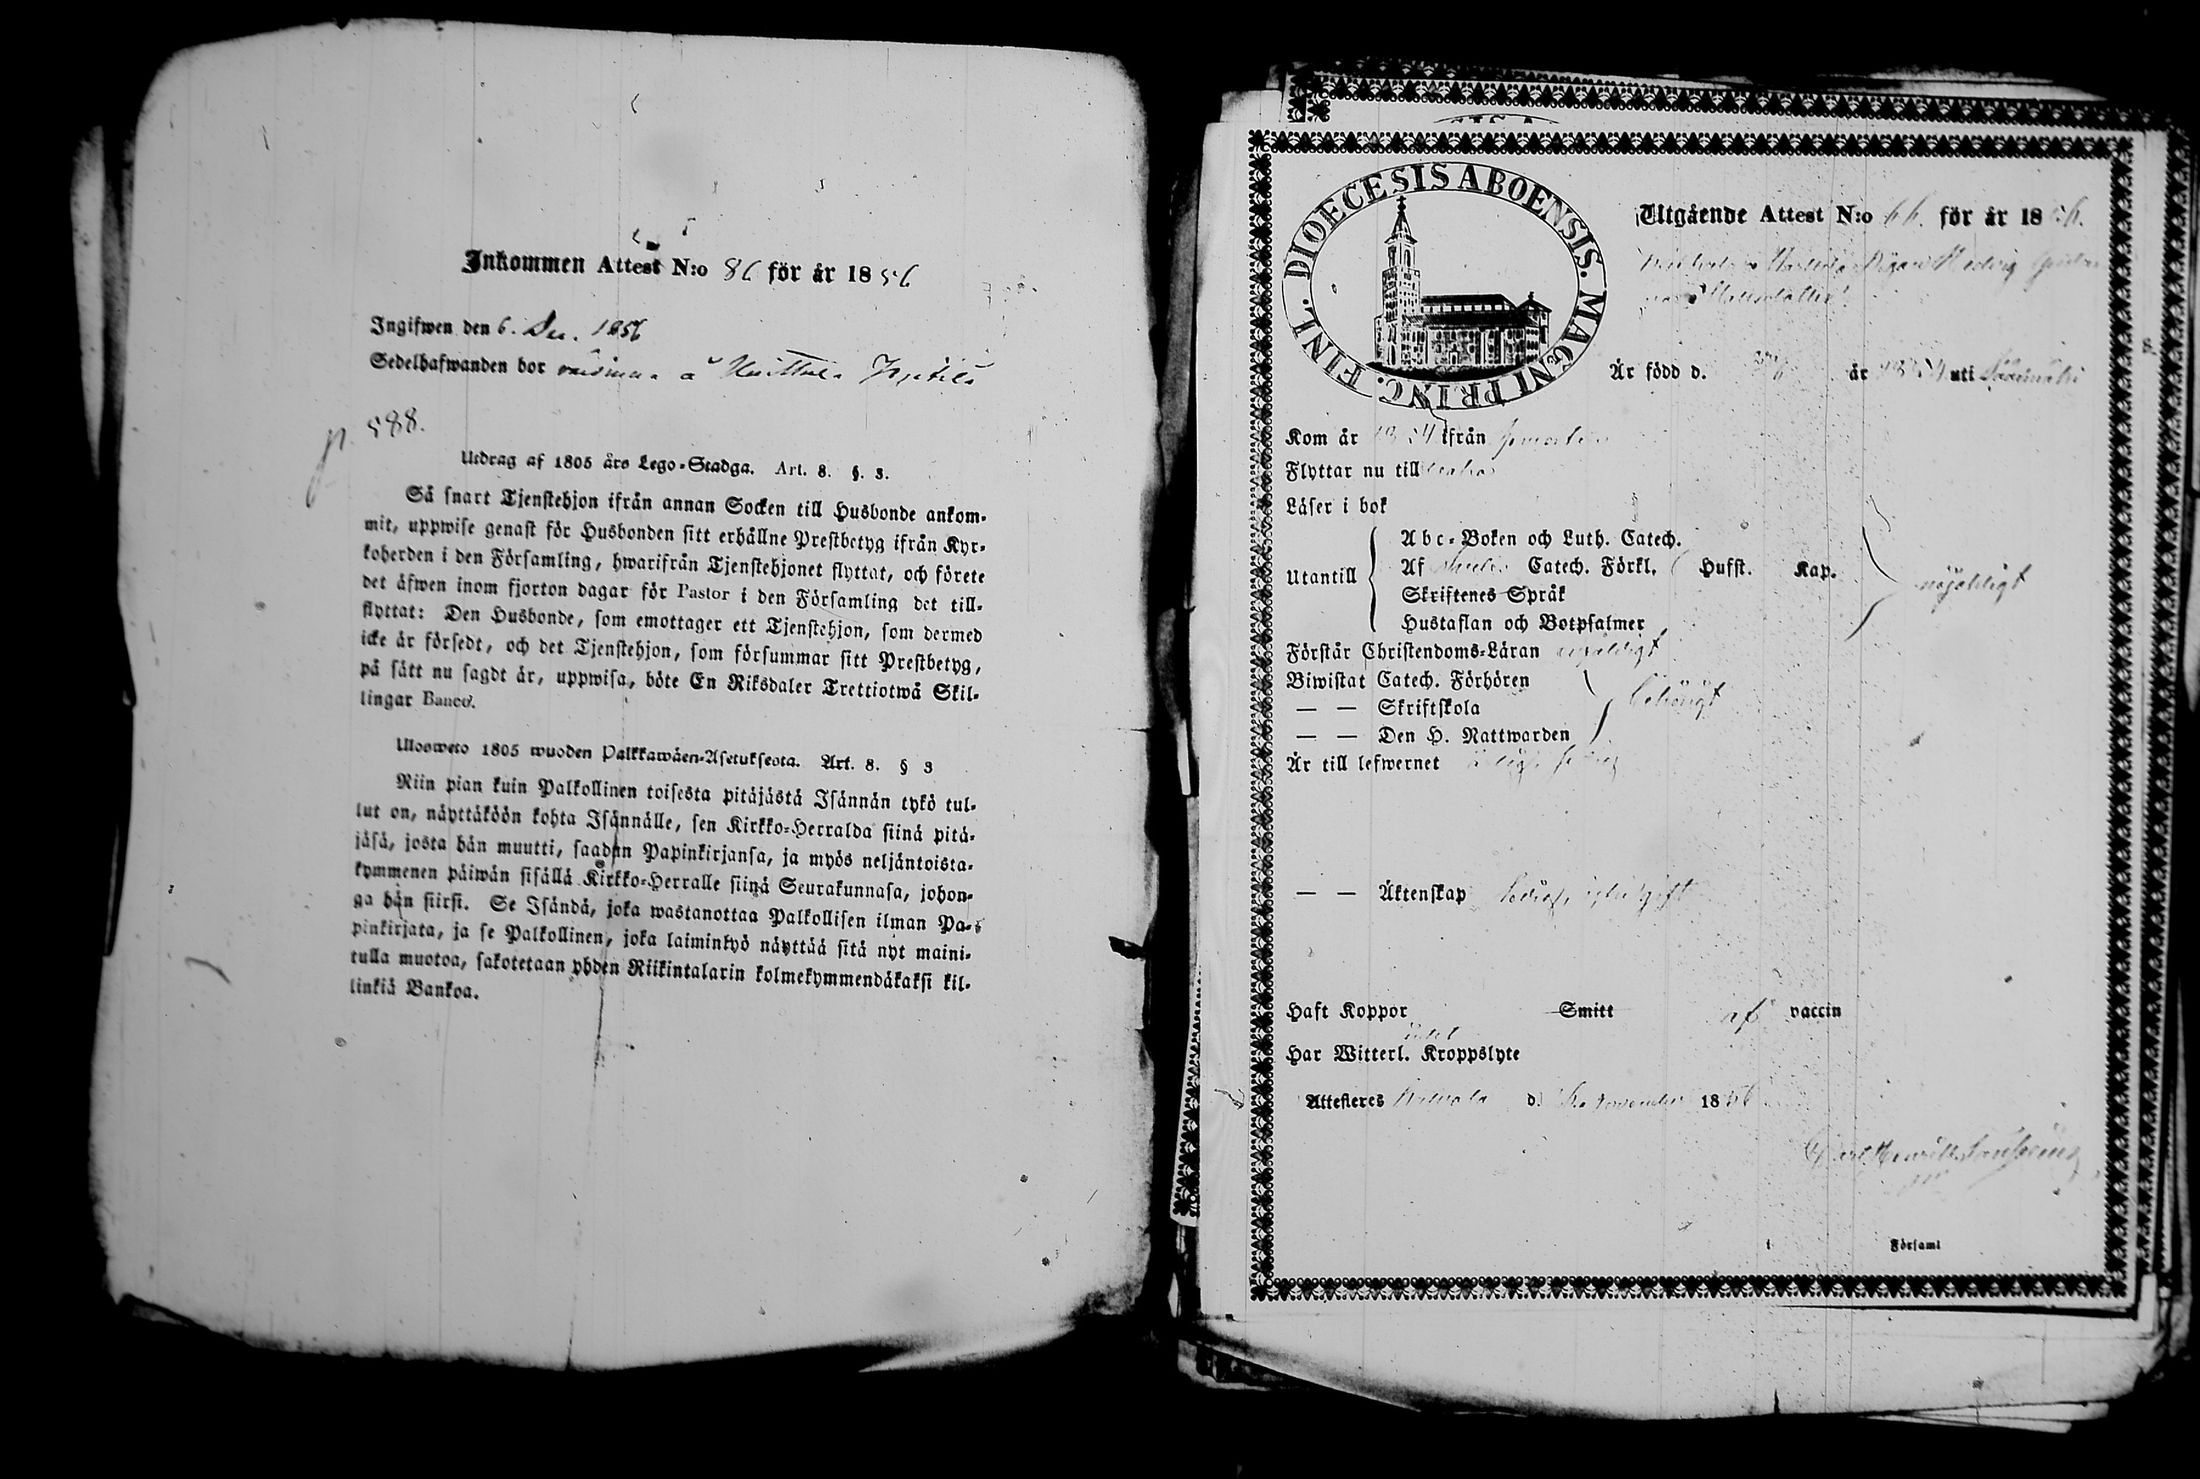 Inkommen Attest N:o 86 för år 1856
Ingifwen den 6. Dec. 1856
Sedelhafwanden bor
p. 588.
Utdrag af 1805 års Lego-Stadga. Art. 8. §. 3.
Så snart Tjenstehjon ifrån annan Socken till Husbonde ankom-
mit, uppwise genast för Husbonden sitt erhållne Prestbetyg ifrån Kyr-
koherden i den Församling, hwarifrån Tjenstehjonet flyttat, och förete
det äfwen inom fjorton dagar för Pastor i den Församling det till-
flyttat: Den Husbonde, som emottager ett Tjenstehjon, som dermed
icke är försedt, och det Tjenstehjon, som försummar sitt Prestbetyg,
på sätt nu sagdt är, uppwisa, böte En Riksdaler Trettiotwå Skil-
lingar Banco.
Ulosweto 1805 wuoden Palkkawäen-Asetuksesta. Art. 8. § 3
Niin pian kuin Palkollinen toisesta pitäjästä Isännän tykö tul-
lut on, näyttäköön kohta Isännälle, sen Kirkko-Herralda siinä pitä-
jäsä, josta hän muutti, saadun Papinkirjansa, ja myös neljäntoista-
kymmenen päiwän sisällä Kirkko-Herralle siinä Seurakunnasa, johon-
ga hän siirsi. Se Isändä, joka wastanottaa Palkollisen ilman Pa-
pinkirjata, ja se Palkollinen, joka laiminlyö näyttää sitä nyt maini-
tulla muotoa, sakotetaan yhden Riikintalarin kolmekymmendäkaksi kil-
linkiä Bankoa.
DIOECESIS ABOENSIS. MAGNI PRINC. FINL.
Utgående Attest N:o 66. för år 1856.
Är född d. år uti
Kom år 1854 ifrån
Flyttar nu till
Läser i bok
Abc-Boken och Luth. Catech.
Utantill Af Catech. Förkl. Hufst. Kap. nöjaktigt
Skriftenes Språk
Hustaflan och Botpsalmer
Förstår Christendoms-Läran nöjaktigt
Biwistat Catech. Förhören
— — Skriftskola behörigt
— — Den H. Nattwarden
Är till lefwernet
— — Äktenskap
Haft Koppor Smitt af vaccin
Har Witterl. Kroppslyte
Attesteres d. November 1856
i Församl